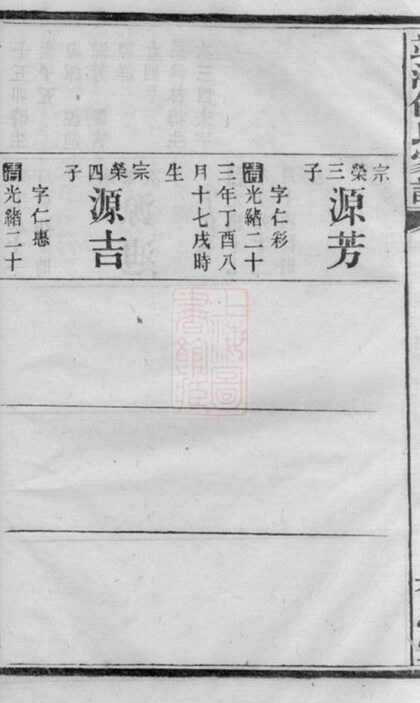 宗榮三子
源芳
字仁彩
清光緒二十
三年丁酉八
月十七戌時
生
宗榮四子
源吉
字仁惠
清光緒二十
上海圖書館藏